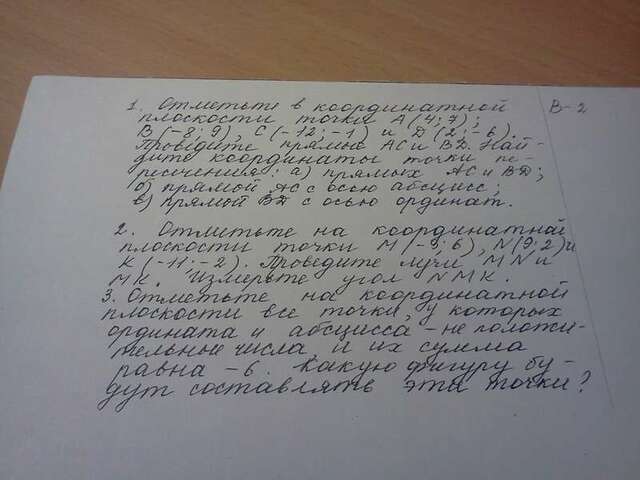 1. Отметьте в координатной
плоскости точки А(4;7);
В(-8;9), С(-12;-1) и D(2;-6).
Проведите прямые АС и ВD. Най-
дите координаты точки пе-
ресечения: а) прямых АС и ВD;
б) прямой АС с осью абсцисс;
в) прямой ВD с осью ординат.
В-2
2. Отметьте на координатной
плоскости точки М(-9;6), N(9;2) и
К(-11;-2). Проведите лучи МN и
МК. Измерьте угол NМК.
3. Отметьте на координатной
плоскости все точки, у которых
ордината и абсцисса - не положи-
тельные числа и их сумма
равна -6. Какую фигуру бу-
дут составлять эти точки?